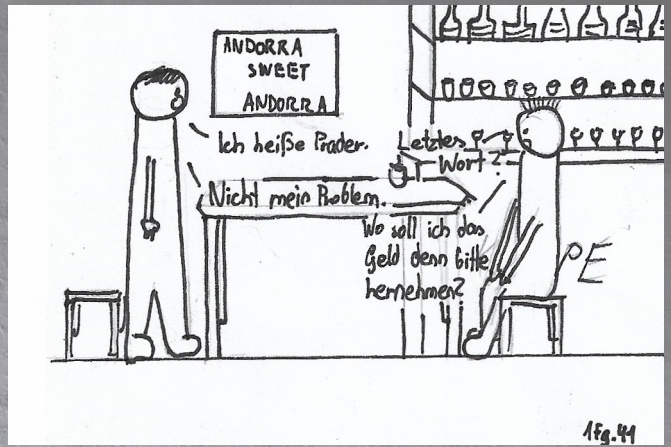 ANDORRA
SWEET
ANDORRA
Ich heiße Prader.
Letztes
Wort?
Nicht mein Problem.
Wo soll ich das
Geld denn bitte
hernehmen?
PE
1Fg.41